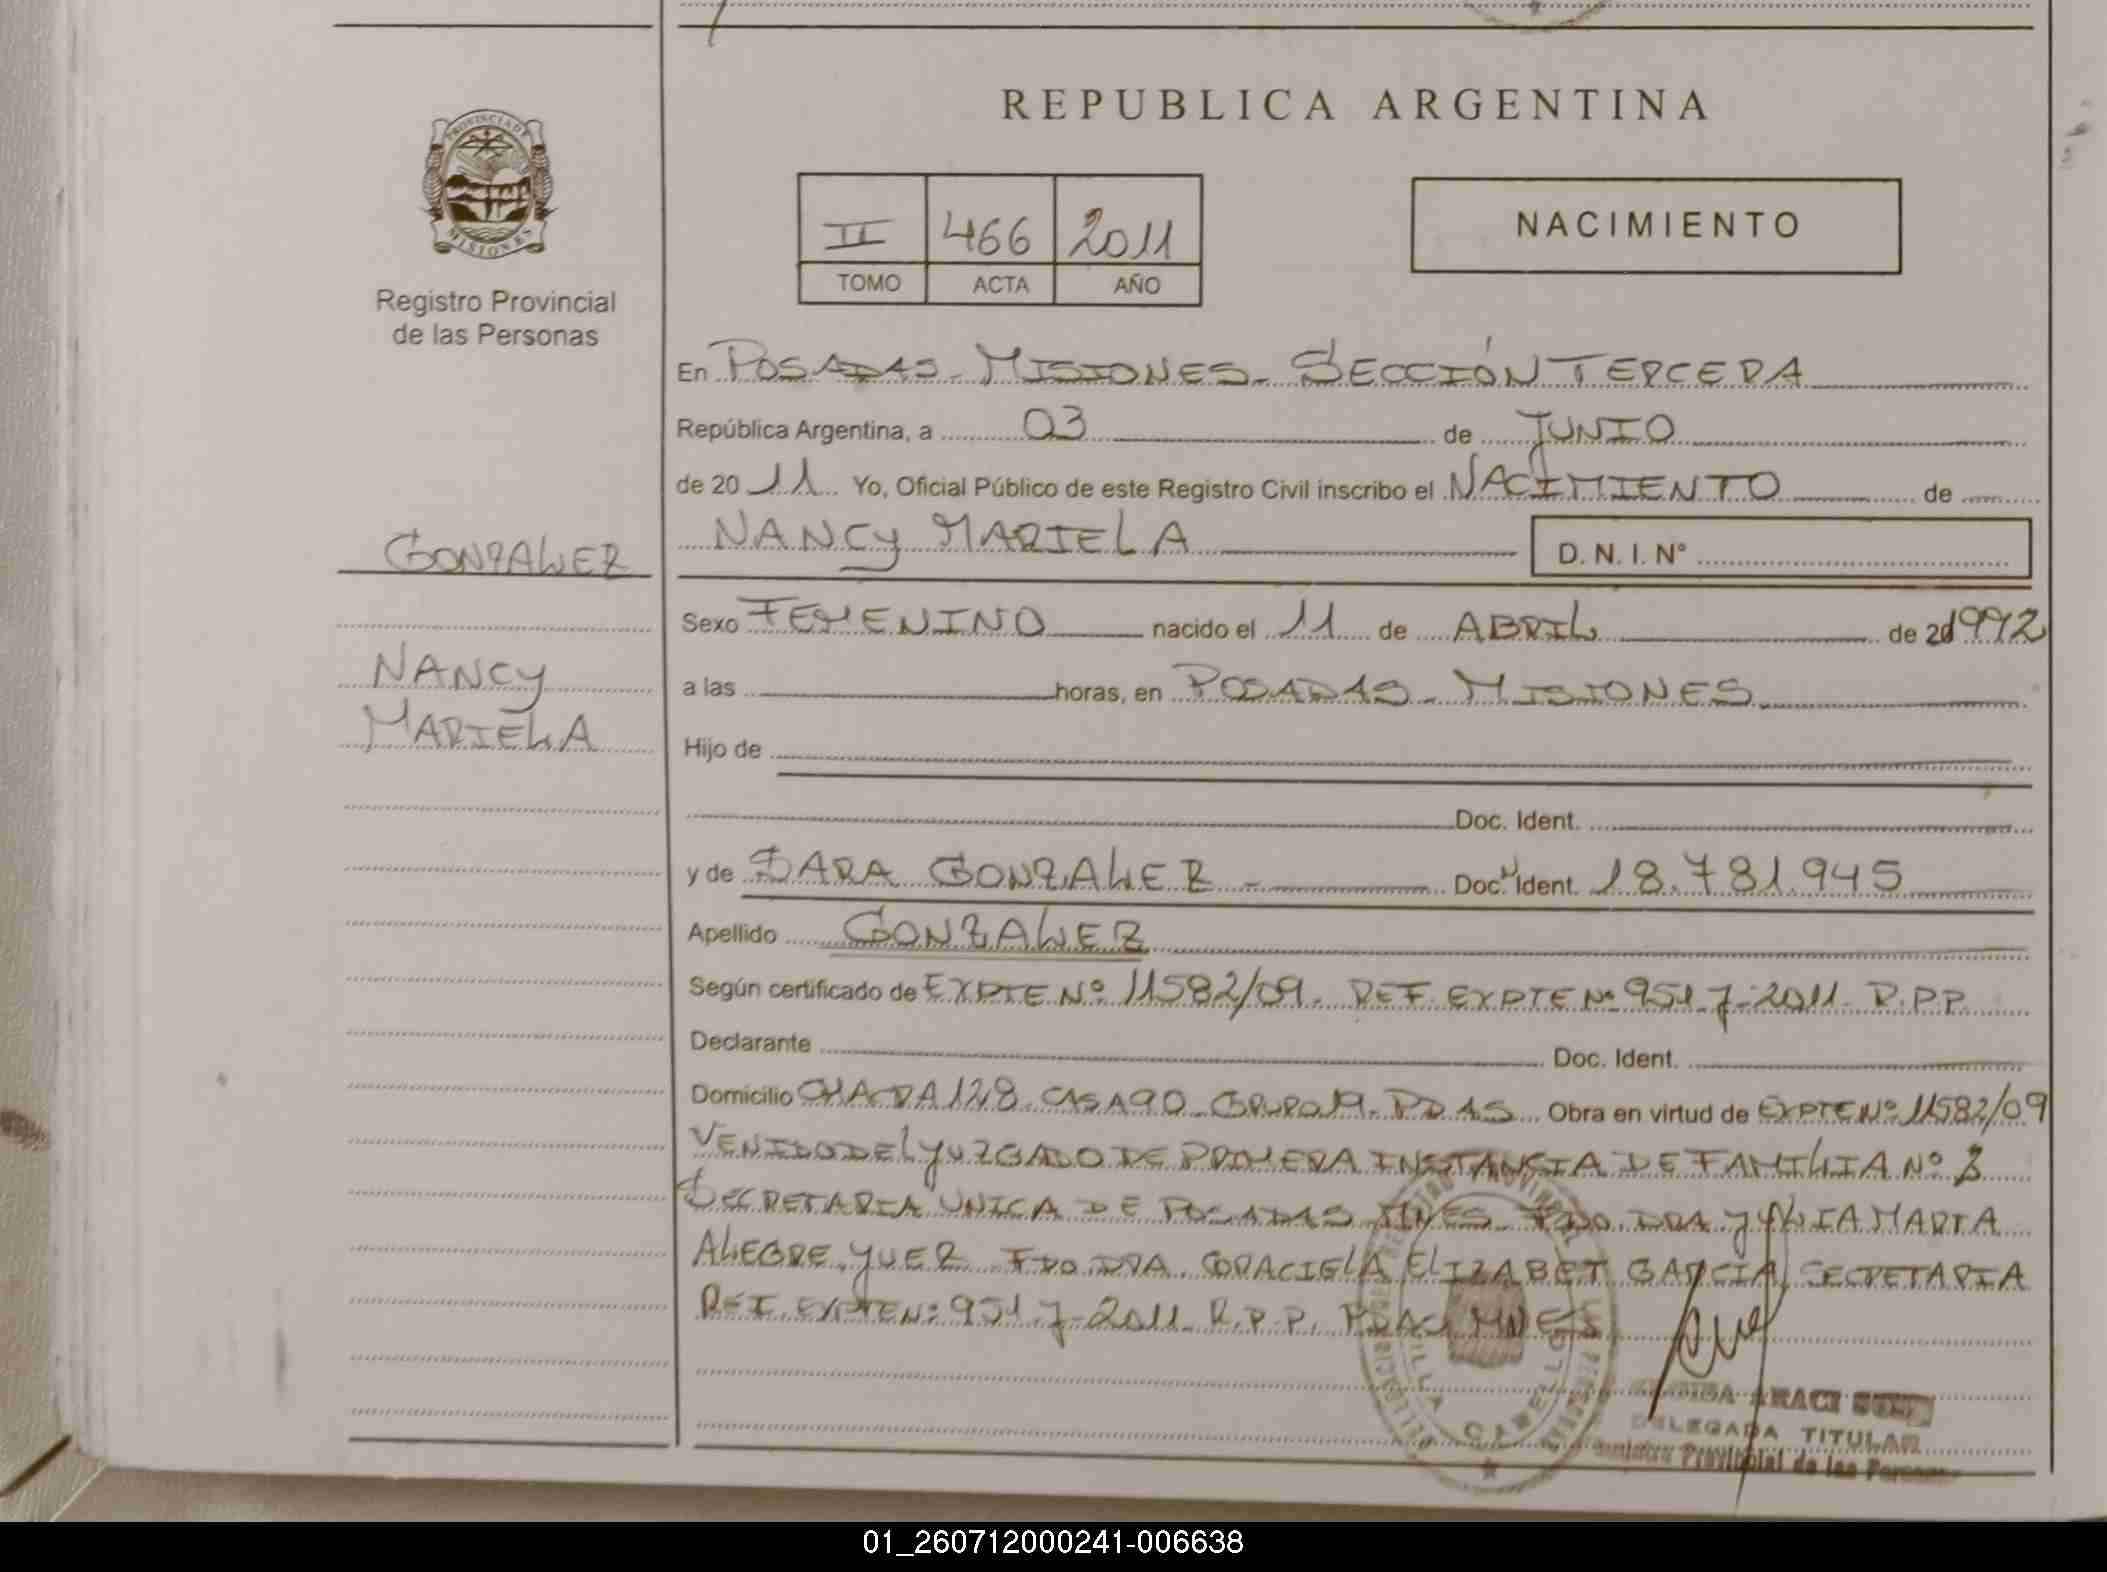 REPUBLICA ARGENTINA
PROVINCIA DE
MISIONES
Registro Provincial
de las Personas
II 466 2011
TOMO ACTA AÑO
NACIMIENTO
En POSADAS - MISIONES - SECCIÓN TERCERA
República Argentina, a 03 de JUNIO
de 20 11 Yo, Oficial Público de este Registro Civil inscribo el NACIMIENTO de
NANCY MARIELA D. N. I. Nº
GONZALEZ
NANCY
MARIELA
Sexo FEMENINO nacido el 11 de ABRIL de 1992
a las horas, en POSADAS - MISIONES
Hijo de
Doc. Ident.
y de SARA GONZALEZ - Doc. Ident. 18.781.945
Apellido GONZALEZ
Según certificado de EXPTE Nº 11582/09 - REF. EXPTE Nº 951-7-2011- R.P.P.
Declarante Doc. Ident.
Domicilio CHACRA 128 - CASA 90 - GRUPO 19 - PDAS Obra en virtud de EXPTE Nº 11582/09
VENIDO DEL JUZGADO DE PRIMERA INSTANCIA DE FAMILIA Nº
SECRETARIA UNICA DE POSADAS MNES FDO. DRA. JULIA MARTA
ALEGRE, JUEZ FDO DRA. GRACIELA ELIZABET GARCIA, SECRETARIA
REF. EXPTE Nº 951-7-2011- R.P.P. PDAS MNES
VILLA CABELLO
ARACI
DELEGADA TITULAR
Registro Provincial de las Personas
01_260712000241-006638